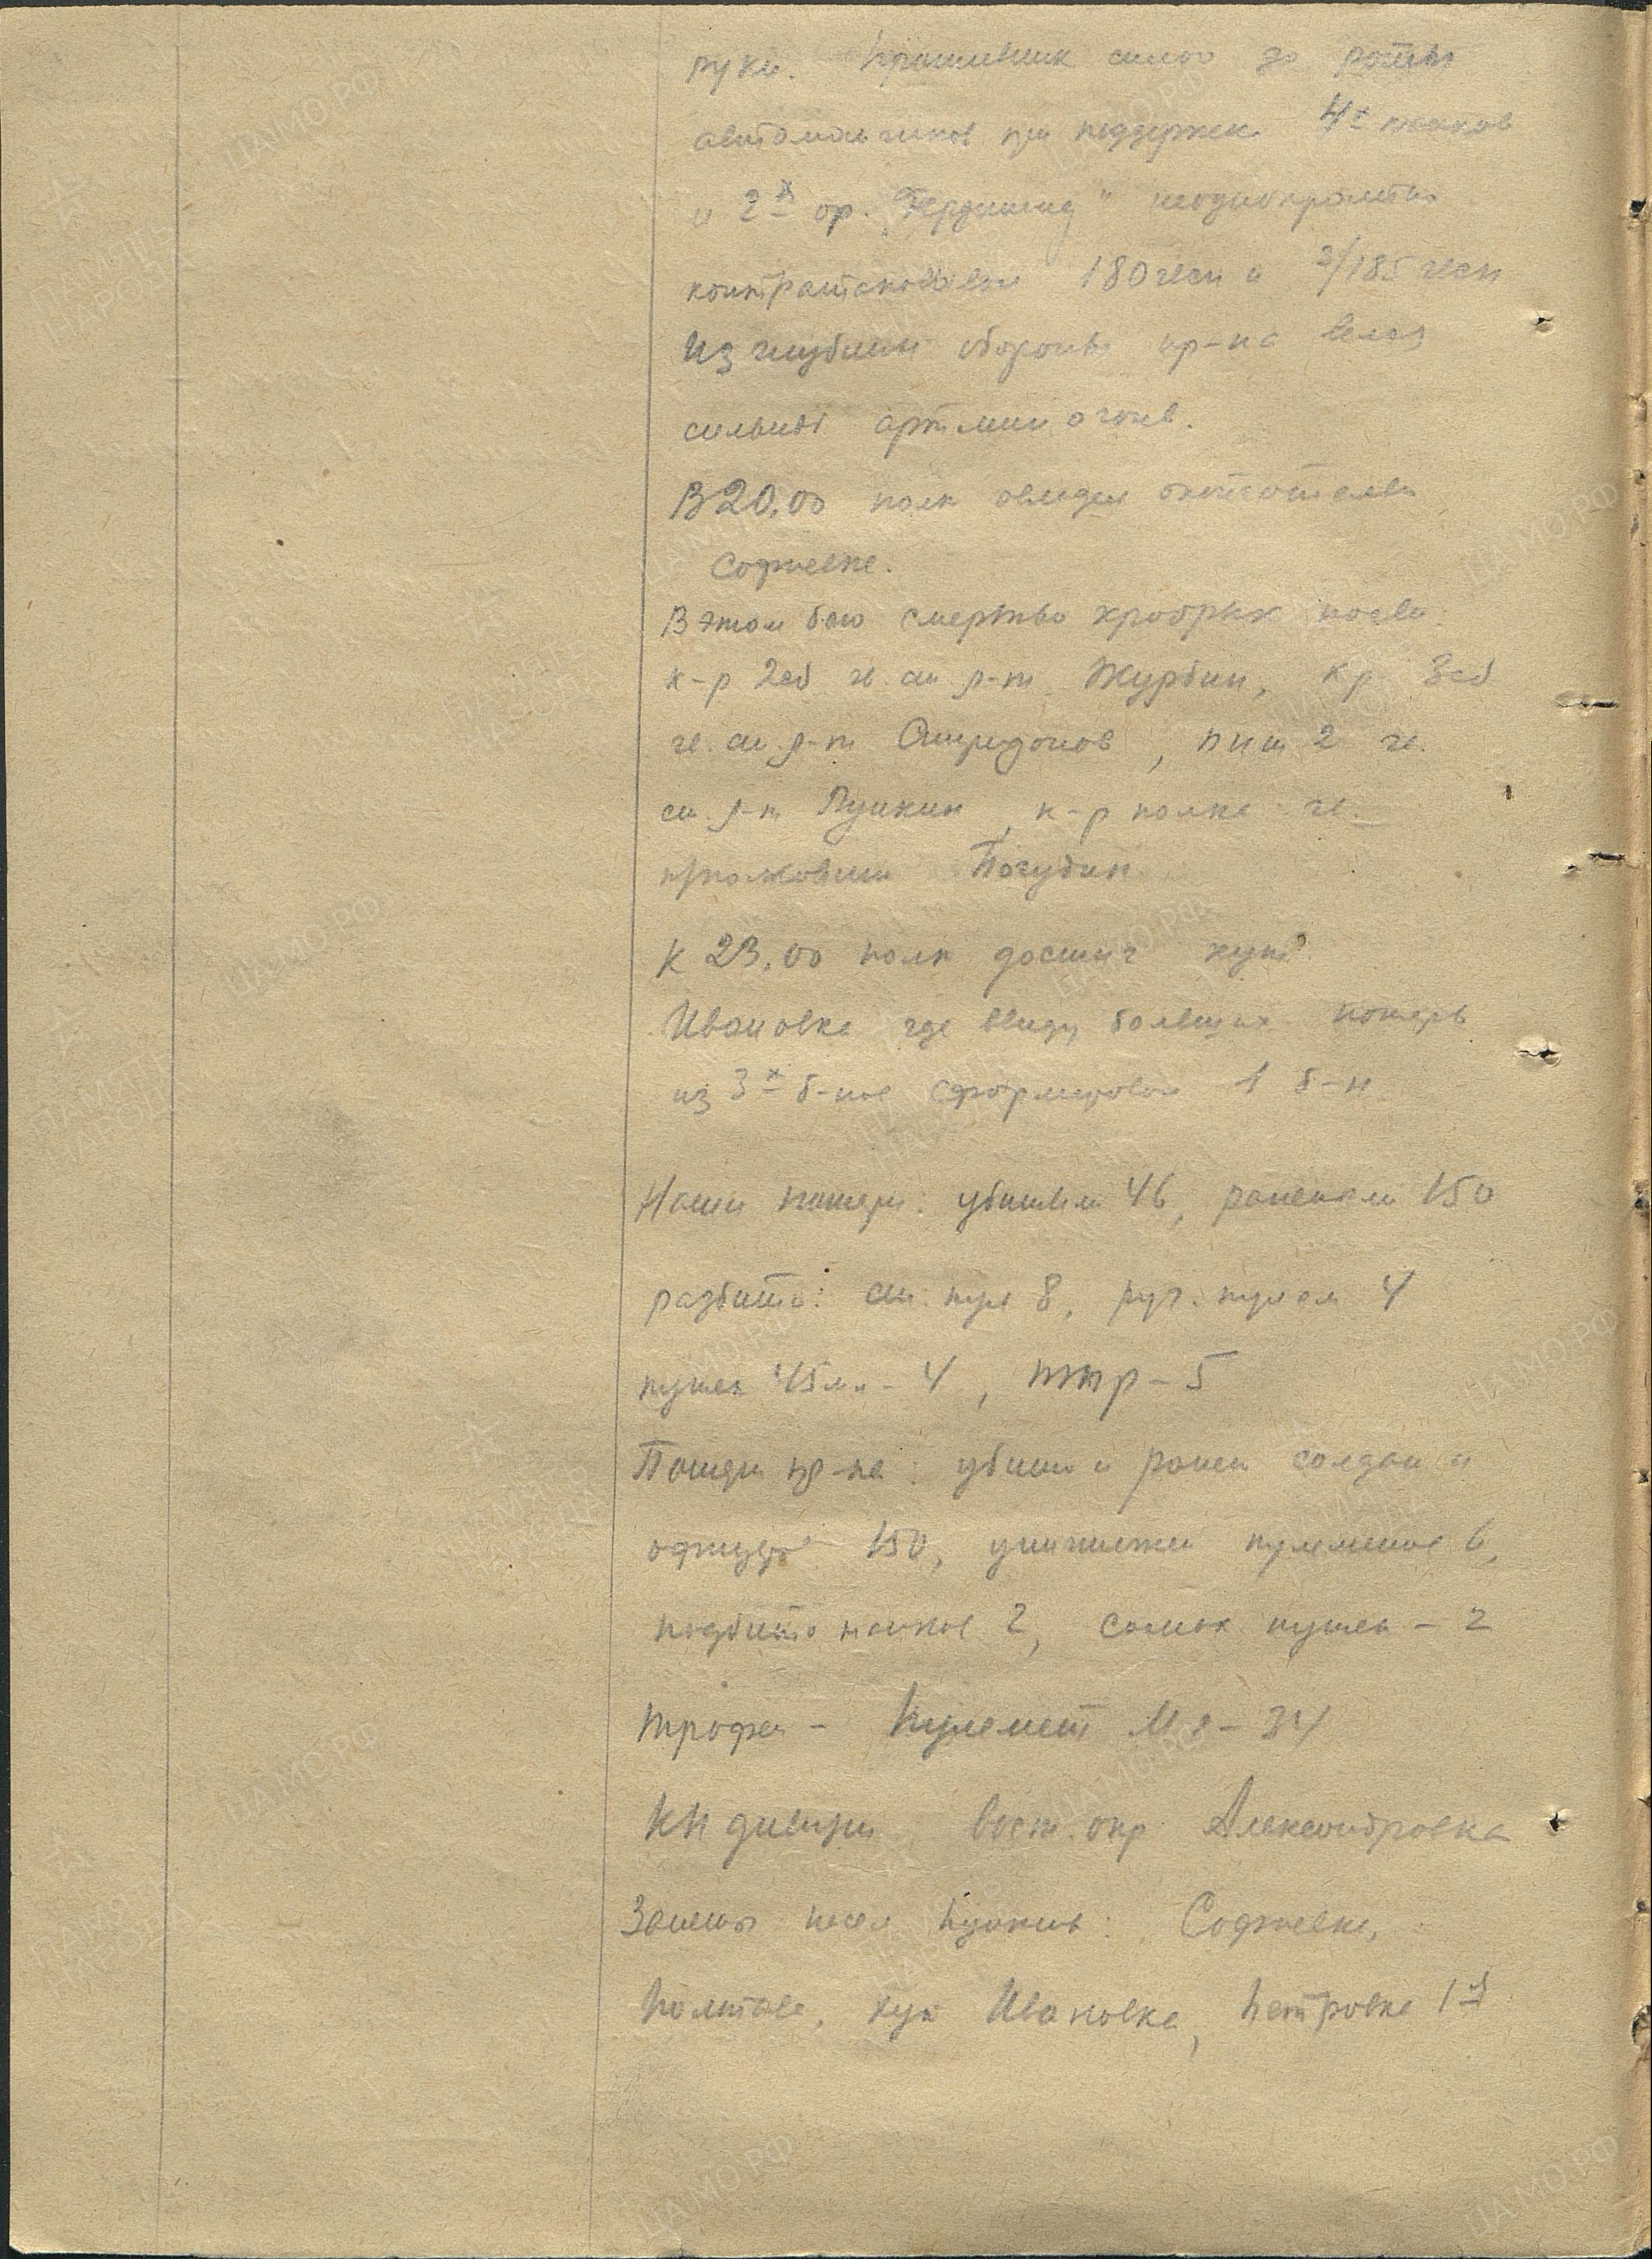 руки. Противник силою до роты
автоматчиков при поддержке 4х танков
и 2х ор. "Фердинанд" неоднократно
контратаковал 180 гвсп и 3/185 гвсп
Из глубины обороны пр-ка велся
сильный артмин огонь.
В 20.00 полк овладел окончательно
Софиевке.
В этом бою смертью храбрых погиб
к-р 2сб гв. ст л-т Журбин, кр 3сб
гв. ст. л-т Спиридонов, пнш 2 гв.
ст. л-т Пушкин, к-р полка гв.
п/полковник Погудин
К 23.00 полк достиг хут
Ивановка где ввиду больших потерь
из 3х б-нов сформирован 1 б-н
Наши потери: убитыми 46, ранеными 150
разбито: ст. пул 8, руч. пулем 4
пушек 45мм - 4, птр - 5
Потери пр-ка: убито и ранен солдат и
офицеров 150, уничтожен пулеметов 6,
подбито танков 2, самох пушек - 2
трофеи - Пулемет МГ - 34
КП дивизии вост. окр Александровка
Заняты насел пункты: Софиевка,
Полтава, хут Ивановка, Петровка 1я